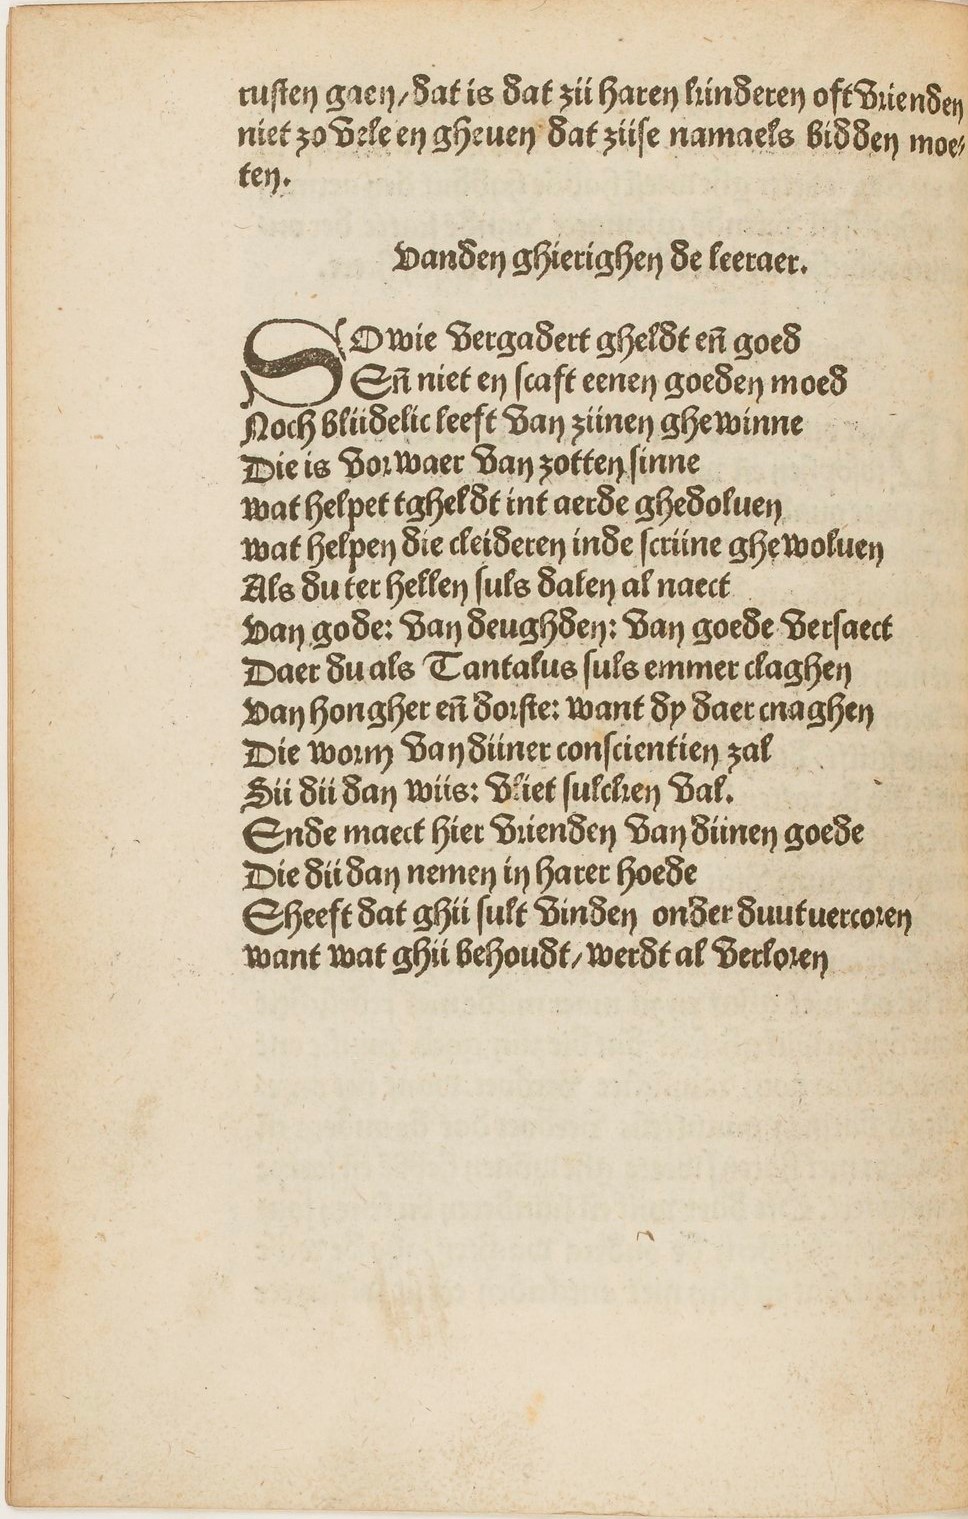 rusten gaen/dat is dat zii haren kinderen oft vrienden
niet zo vele en gheuen dat ziise namaels bidden moe-
ten.
Vanden ghierighen de leeraer.
SOwie vergadert gheldt eñ goed
Eñ niet en scaft eenen goeden moed
Noch bliidelic leeft van ziinen ghewinne
Die is vorwaer van zotten sinne
wat helpet tgheldt int aerde ghedoluen
wat helpen die cleideren inde scriine ghewoluen
Als du ter hellen suls dalen al naect
Van gode: van deughden: van goede versaect
Daer du als Tantalus suls emmer claghen
Van hongher eñ dorste: want dy daer cnaghen
Die worm van diiner conscientien zal
Sii dii dan wiis: vliet sulcken val.
Ende maect hier vrienden van diinen goede
Die dii dan nemen in harer hoede
Gheeft dat ghii sult vinden onder duutuercoren
want wat ghii behoudt/werdt al verloren